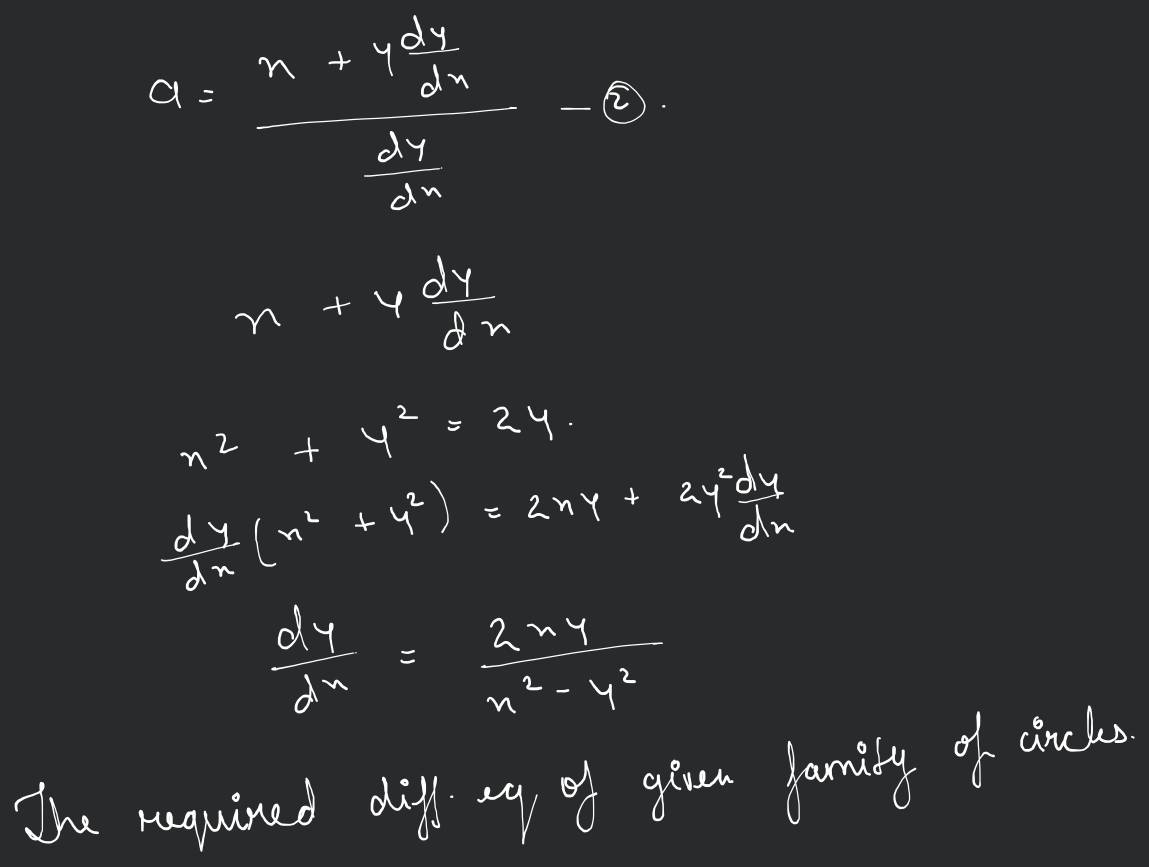 a = (x + y dy/dx) / (dy/dx) — ②.
x + y dy/dx
x² + y² = 2y.
dy/dx (x² + y²) = 2xy + 2y² dy/dx
dy/dx = 2xy / (x² - y²)
The required diff. eq, of given family of circles.